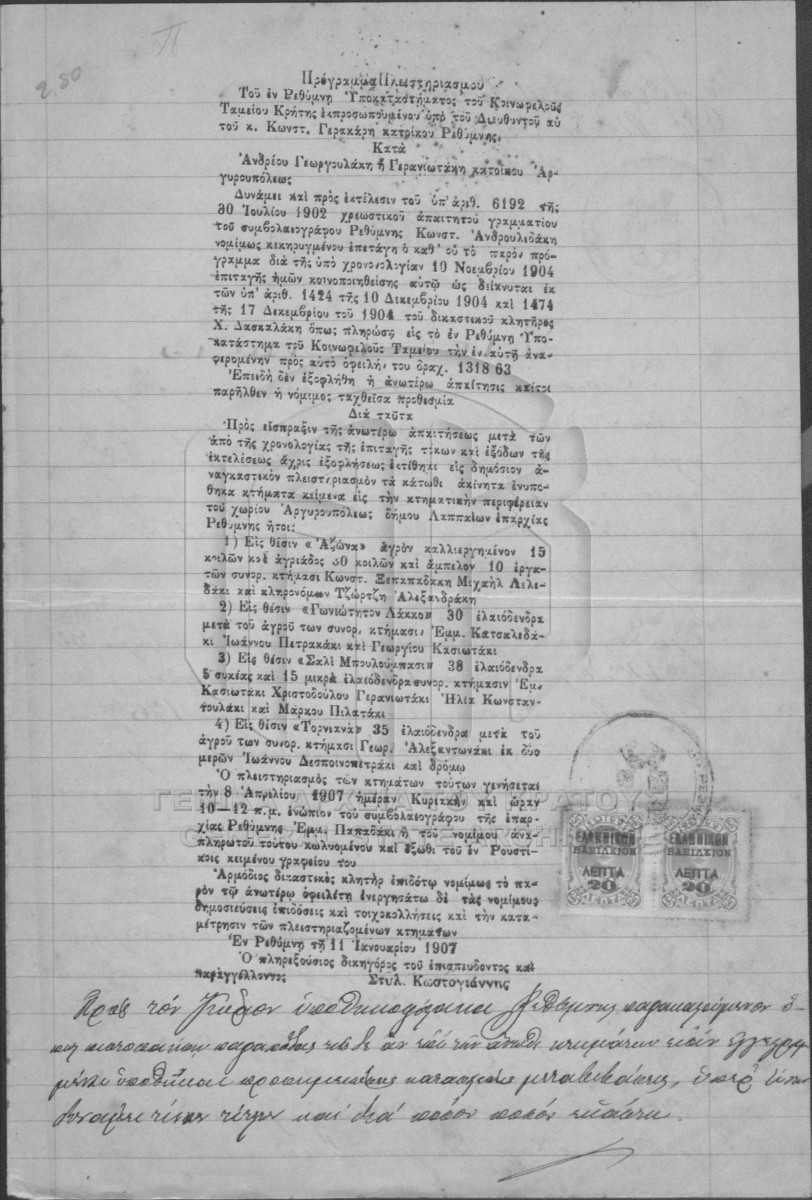 2.80
Π
Πρόγραμμα Πλειστηριασμοῦ
Τοῦ ἐν Ρεθύμνῃ Ὑποκαταστήματος τοῦ Κοινωφελοῦς
Ταμείου Κρήτης ἐκπροσωπουμένου ὑπὸ τοῦ Διευθυντοῦ αὐ
τοῦ κ. Κωνστ. Γερακάρη κατοίκου Ρεθύμνης.
Κατὰ
Ἀνδρέου Γεωργουλάκη ἢ Γερανιωτάκη κατοίκου Ἀρ-
γυρουπόλεως
Δυνάμει καὶ πρὸς ἐκτέλεσιν τοῦ ὑπ' ἀριθ. 6192 τῆς
30 Ἰουλίου 1902 χρεωστικοῦ ἀπαιτητοῦ γραμματίου
τοῦ συμβολαιογράφου Ρεθύμνης Κωνστ. Ἀνδρουλιδάκη
νομίμως κεκηρυγμένου ἐπετάγη ὁ καθ' οὗ τὸ παρὸν πρό-
γραμμα διὰ τῆς ὑπὸ χρονολογίαν 19 Νοεμβρίου 1904
ἐπιταγῆς ἡμῶν κοινοποιηθείσης αὐτῷ ὡς δείκνυται ἐκ
τῶν ὑπ' ἀριθ. 1424 τῆς 10 Δεκεμβρίου 1904 καὶ 1474
τῆς 17 Δεκεμβρίου τοῦ 1904 τοῦ δικαστικοῦ κλητῆρος
Χ. Δασκαλάκη ὅπως πληρώσῃ εἰς τὸ ἐν Ρεθύμνῃ Ὑπο-
κατάστημα τοῦ Κοινωφελοῦς Ταμείου τὴν ἐν αὐτῇ ἀνα-
φερομένην πρὸς αὐτὸ ὀφειλήν του δραχ. 1318 63
Ἐπειδὴ δὲν ἐξοφλήθη ἡ ἀνωτέρω ἀπαίτησις καίτοι
παρῆλθεν ἡ νόμιμος ταχθεῖσα προθεσμία
Διὰ ταῦτα
Πρὸς εἴσπραξιν τῆς ἀνωτέρω ἀπαιτήσεως μετὰ τῶν
ἀπὸ τῆς χρονολογίας τῆς ἐπιταγῆς τόκων καὶ ἐξόδων τῆς
ἐκτελέσεως ἄχρις ἐξοφλήσεως ἐκτίθημι εἰς δημόσιον ἀ-
ναγκαστικὸν πλειστηριασμὸν τὰ κάτωθι ἀκίνητα ἐνυπό-
θηκα κτήματα κείμενα εἰς τὴν κτηματικὴν περιφέρειαν
τοῦ χωρίου Ἀργυρουπόλεως δήμου Λαππαίων ἐπαρχίας
Ρεθύμνης ἤτοι:
1) Εἰς θέσιν «Ἀζώνα» ἀγρὸν καλλιεργημένον 15
κοιλῶν καὶ ἀγριάδος 30 κοιλῶν καὶ ἄμπελον 10 ἐργα-
τῶν συνορ. κτήμασι Κωνστ. Ξεπαπαδάκη Μιχαὴλ Λελε-
δάκι καὶ κληρονόμων Τζώρτζη Ἀλεξανδράκη
2) Εἰς θέσιν «Γωνιώτητον Λάκκο» 30 ἐλαιόδενδρα
μετὰ τοῦ ἀγροῦ των συνορ. κτήμασι, Ἐμμ. Κατσαλεδά-
κι Ἰωάννου Πετρακάκι καὶ Γεωργίου Κασιωτάκι
3) Εἰς θέσιν «Σαλὶ Μπουλούμπασι» 38 ἐλαιόδενδρα
5 συκέας καὶ 15 μικρὰ ἐλαιόδενδρα συνορ. κτήμασιν Ἐμ.
Κασιωτάκι Χριστοδούλου Γερανιωτάκι Ἠλία Κωνσταν-
τουλάκι καὶ Μάρκου Πιλατάκι
4) Εἰς θέσιν «Τορνιανὰ» 35 ἐλαιόδενδρα μετὰ τοῦ
ἀγροῦ των συνορ. κτήμασι Γεωρ. Ἀλεξαντωνάκι ἐκ δύο
μερῶν Ἰωάννου Δεσποινοπετράκι καὶ δρόμῳ
Ὁ πλειστηριασμὸς τῶν κτημάτων τούτων γενήσεται
τὴν 8 Ἀπριλίου 1907 ἡμέραν Κυριακὴν καὶ ὥραν
10—12 π.μ. ἐνώπιον τοῦ συμβολαιογράφου τῆς ἐπαρ-
χίας Ρεθύμνης Ἐμμ. Παπαδάκι ἢ τοῦ νομίμου ἀνα-
πληρωτοῦ τούτου κωλυομένου καὶ ἔξωθι τοῦ ἐν Ρουστί-
κοις κειμένου γραφείου του
Ἁρμόδιος δικαστικὸς κλητὴρ ἐπιδότω νομίμως τὸ πα-
ρὸν τῷ ἀνωτέρω ὀφειλέτῃ ἐνεργησάτω δὲ τὰς νομίμους
δημοσιεύσεις ἐπιδόσεις καὶ τοιχοκολλήσεις καὶ τὴν κατα-
μέτρησιν τῶν πλειστηριαζομένων κτημάτων
Ἐν Ρεθύμνῃ τῇ 11 Ἰανουαρίου 1907
Ὁ πληρεξούσιος δικηγόρος τοῦ ἐπισπεύδοντος καὶ
παραγγέλλοντος Στυλ. Κωστογιάννης
ΕΛΛΗΝΙΚΟΝ
ΒΑΣΙΛΕΙΟΝ
ΛΕΠΤΑ
20
ΕΛΛΗΝΙΚΟΝ
ΒΑΣΙΛΕΙΟΝ
ΛΕΠΤΑ
20
Πρὸς τὸν Κύριον ὑποθηκοφύλακα Ρεθύμνης παρακαλούμενον ὅ-
πως
ὑποθῆκαι
τίτλου καὶ διὰ ποῖον ποσὸν ἑκάστη.